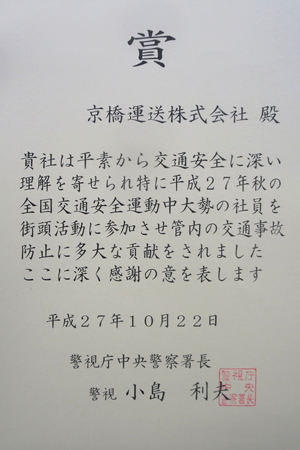 賞
京橋運送株式会社 殿
貴社は平素から交通安全に深い
理解を寄せられ特に平成27年秋の
全国交通安全運動中大勢の社員を
街頭活動に参加させ管内の交通事故
防止に多大な貢献をされました
ここに深く感謝の意を表します
平成27年10月22日
警視庁中央警察署長
警視 小島 利夫